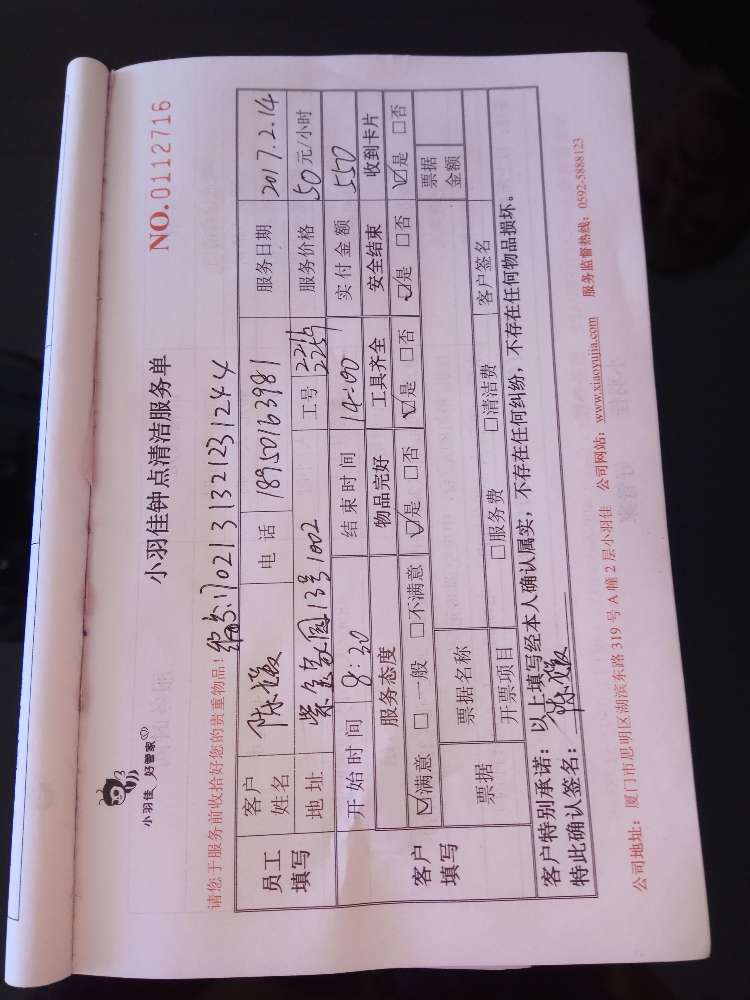 小羽佳 好管家
小羽佳钟点清洁服务单
NO.0112716
请您于服务前收拾好您的贵重物品！
编号:1702131321231244
员工填写 客户姓名 陈 电话 18950163981 服务日期 2017.2.14
地址 紫金家园13号1002 工号 2219 2259 服务价格 50元/小时
客户填写 开始时间 8:30 结束时间 14:00 实付金额 550
服务态度 物品完好 工具齐全 安全结束 收到卡片
☑满意 □ 一般 □不满意 ☑是 □否 ☑是 □否 ☑是 □否 ☑是 □否
票据 票据名称 票据金额
开票项目 □服务费 □清洁费 客户签名
客户特别承诺：以上填写经本人确认属实，不存在任何纠纷，不存在任何物品损坏。
特此确认签名：陈
公司地址：厦门市思明区湖滨东路 319 号 A 幢 2 层小羽佳 公司网站：www.xiaoyujia.com 服务监督热线：0592-5888123